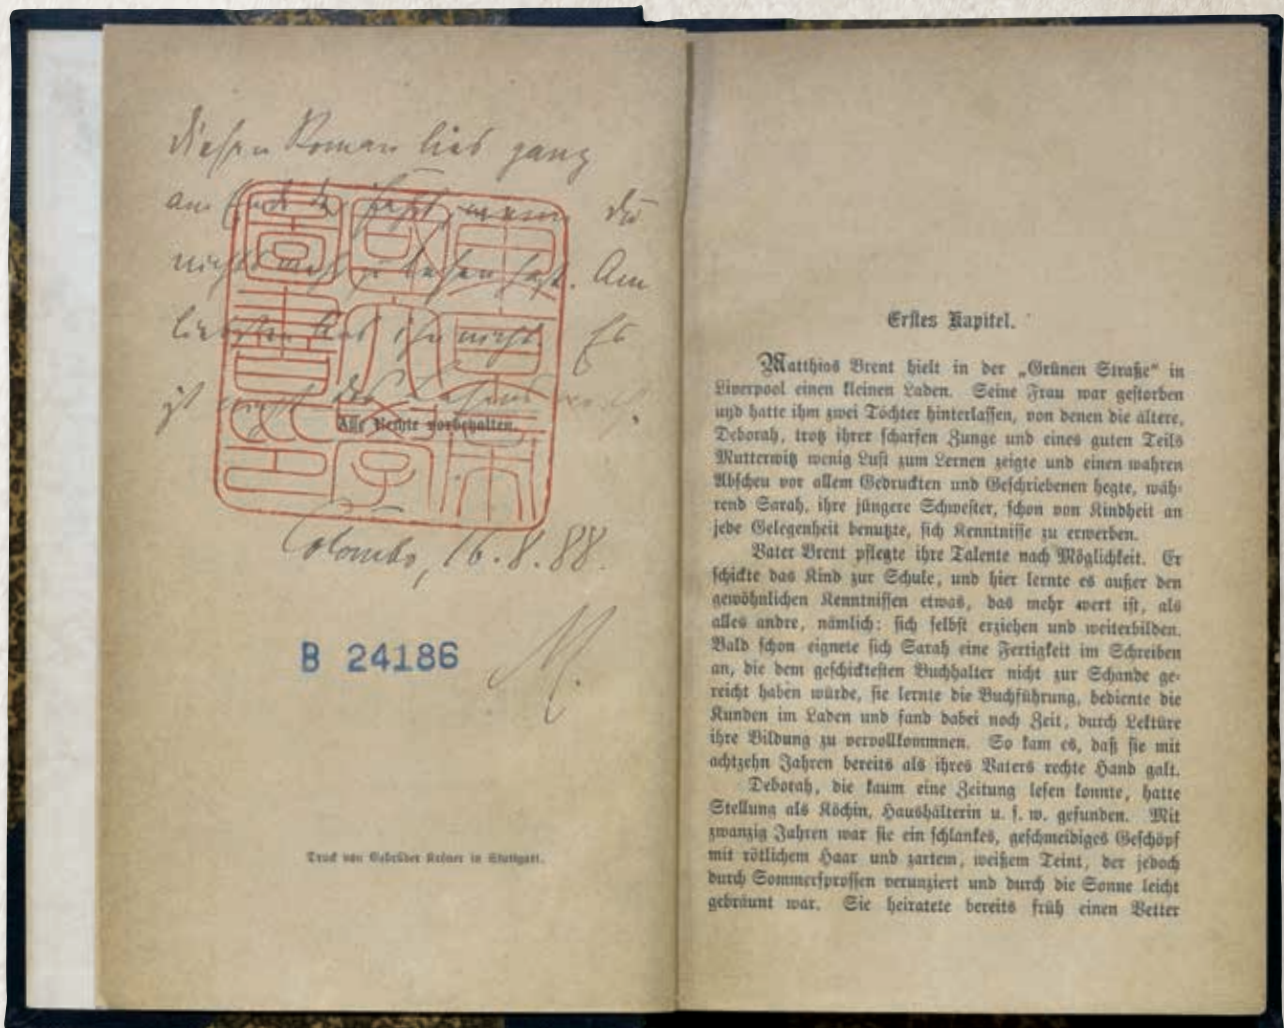 Diesen Roman lies ganz
am Ende der Fahrt, wenn du
nichts mehr zu lesen hast. Am
liebsten lies ihn nicht. Es
ist nicht des Lesens
東京帝
國大學
圖書印
Alle Rechte vorbehalten.
Colombo, 16.8.88.
M.
B 24186
Druck von Gebrüder Kröner in Stuttgart.
Erstes Kapitel.
Matthias Brent hielt in der „Grünen Straße“ in
Liverpool einen kleinen Laden. Seine Frau war gestorben
und hatte ihm zwei Töchter hinterlassen, von denen die ältere,
Deborah, trotz ihrer scharfen Zunge und eines guten Teils
Mutterwitz wenig Lust zum Lernen zeigte und einen wahren
Abscheu vor allem Gedruckten und Geschriebenen hegte, wäh-
rend Sarah, ihre jüngere Schwester, schon von Kindheit an
jede Gelegenheit benutzte, sich Kenntnisse zu erwerben.
Vater Brent pflegte ihre Talente nach Möglichkeit. Er
schickte das Kind zur Schule, und hier lernte es außer den
gewöhnlichen Kenntnissen etwas, das mehr wert ist, als
alles andre, nämlich: sich selbst erziehen und weiterbilden.
Bald schon eignete sich Sarah eine Fertigkeit im Schreiben
an, die dem geschicktesten Buchhalter nicht zur Schande ge-
reicht haben würde, sie lernte die Buchführung, bediente die
Kunden im Laden und fand dabei noch Zeit, durch Lektüre
ihre Bildung zu vervollkommnen. So kam es, daß sie mit
achtzehn Jahren bereits als ihres Vaters rechte Hand galt.
Deborah, die kaum eine Zeitung lesen konnte, hatte
Stellung als Köchin, Haushälterin u. s. w. gefunden. Mit
zwanzig Jahren war sie ein schlankes, geschmeidiges Geschöpf
mit rötlichem Haar und zartem, weißem Teint, der jedoch
durch Sommersprossen verunziert und durch die Sonne leicht
gebräunt war. Sie heiratete bereits früh einen Vetter